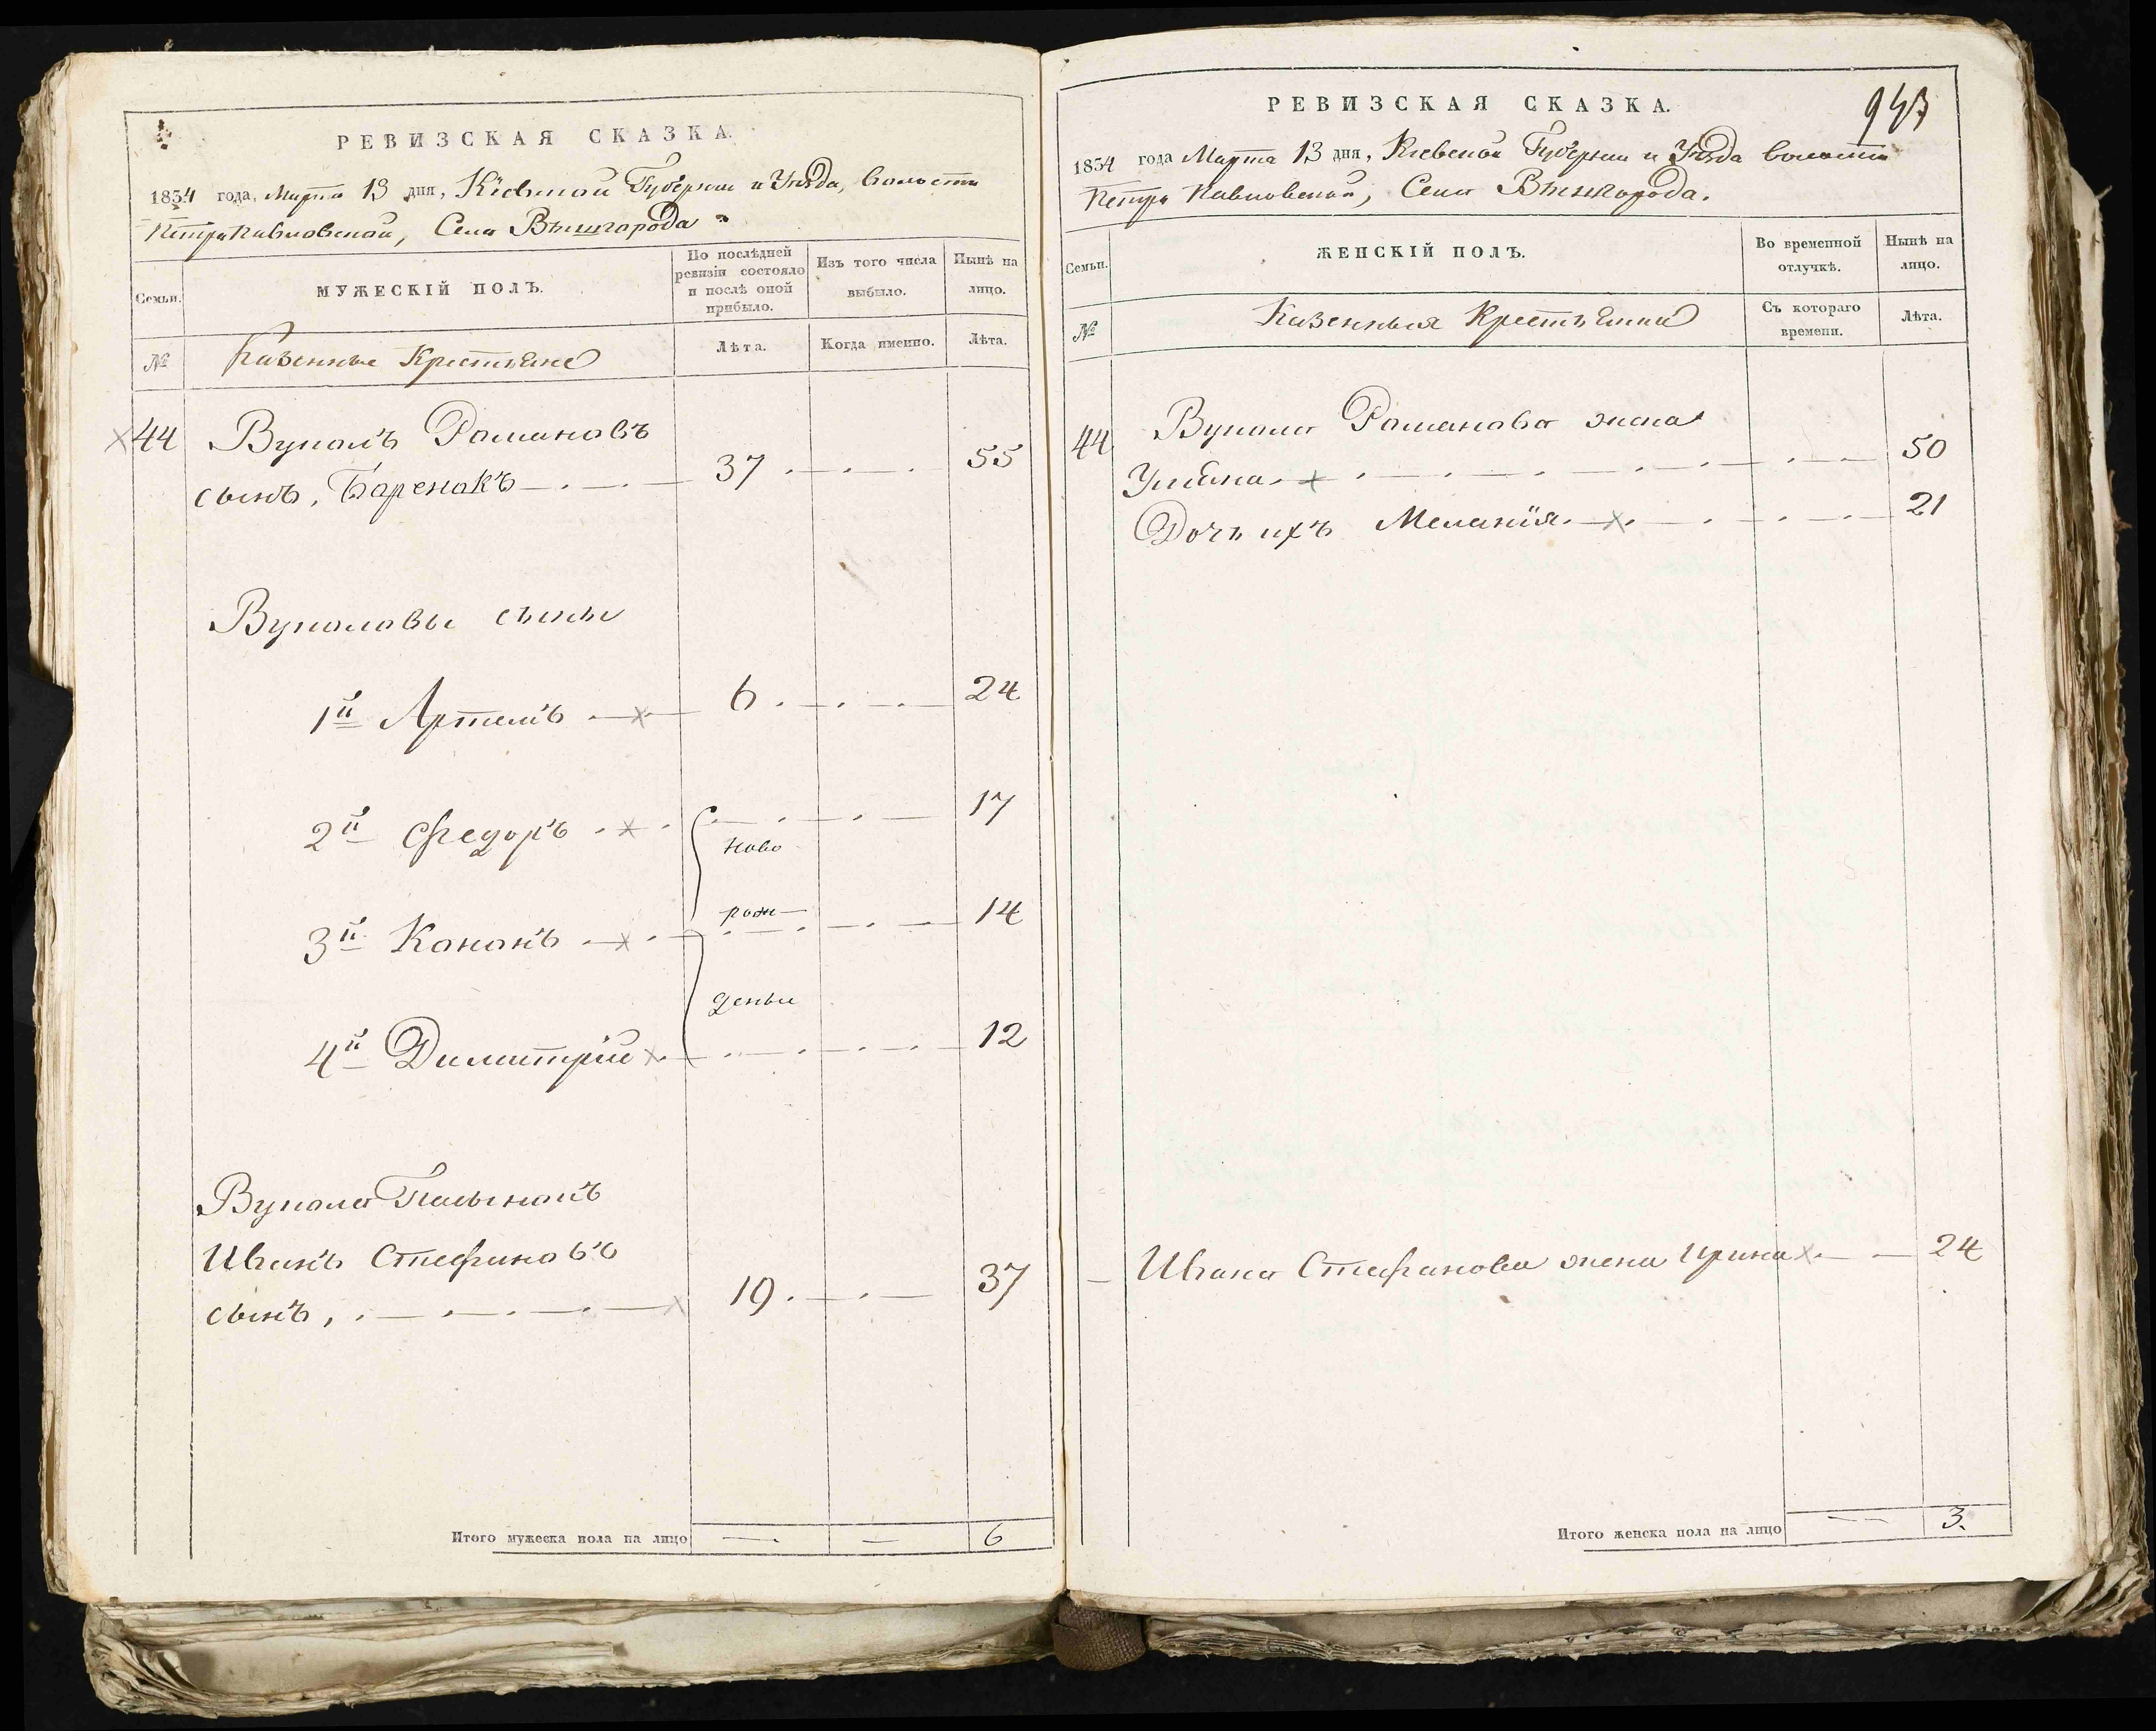 РЕВИЗСКАЯ СКАЗКА.
1854 года, Марта 13 дня, Кіевской Губерніи и Уѣзда, Волости
Петропавловской, Села Вышгорода
Семьи.
МУЖЕСКІЙ ПОЛЪ.
По послѣдней ревизіи состояло и послѣ оной прибыло.
Изъ того числа выбыло.
Нынѣ на лицо.
№
Казенные Крестьяне
Лѣта.
Когда именно.
Лѣта.
44 Вуколъ Романовъ
сынъ, Баренакъ 37 55
Вуколовы сыны
1й Артемъ 6 24
2й Федоръ 17
ново
рож
3й Кононъ 14
денны
4й Димитрій 12
Вукола
Иванъ Стефановъ
сынъ, 19 37
Итого мужеска пола на лицо — — 6
РЕВИЗСКАЯ СКАЗКА.
943
1854 года Марта 13 дня, Кіевской Губерніи и Уѣзда Волости
Петро Павловской, Села Вышгорода.
Семьи.
ЖЕНСКІЙ ПОЛЪ.
Во временной отлучкѣ.
Нынѣ на лицо.
№
Казенныя Крестьянки
Съ котораго времени.
Лѣта.
44 Вукола Романова жена
Ульяна 50
Дочь ихъ Меланія 21
Ивана Стефанова жена Ирина 24
Итого женска пола на лицо — — 3.